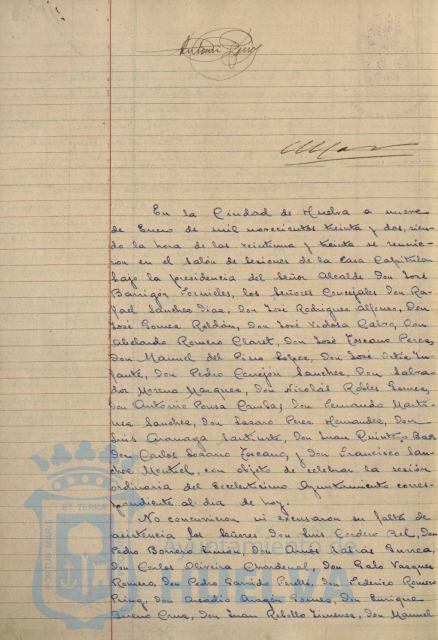 Antonio Pérez
En la Ciudad de Huelva a nueve
de Enero de mil novecientos treinta y dos, sien-
do la hora de las veintiuna y treinta se reunie-
ron en el Salón de Sesiones de la Casa Capitular
bajo la presidencia del Señor Alcalde Don José
Barrigón Fornieles, los Señores Concejales Don Ra-
fael Sánchez Díaz, Don José Rodríguez Alfonso, Don
José Gómez Roldán, Don José Vidosa Calvo, Don
Abelardo Romero Claret, Don José Toscano Pérez,
Don Manuel del Pino López, Don José Ortiz In-
fante, Don Pedro Cerejón Sánchez, Don Salva-
dor Moreno Márquez, Don Nicolás Robles Gómez,
Don Antonio Pousa Camba, Don Fernando Martí-
nez Sánchez, Don Lázaro Pérez Hernández, Don
Luis Aramaga Don Juan Quintero Baz
Don Carlos Lozano Toscano, y Don Francisco Sán-
chez Montiel, con objeto de celebrar la sesión
ordinaria del Excelentísimo Ayuntamiento corres-
pondiente al día de hoy.
No concurrieron ni excusaron su falta de
asistencia los Señores Don Luis Cordero Bel, Don
Pedro Borrero Limón, Don Amós Sabrás Gurrea,
Don Carlos Oliveira Chardenal, Don Galo Vázquez
Romero, Don Pedro Garrido Perelló, Don Federico Romero
Don Acadio Aragón Gómez, Don Enrique
Bueno Cruz, Don Juan Rebollo Jiménez, Don Manuel
PORTUS MARIS
ET TERRAE
Ayuntamiento de
HUELVA